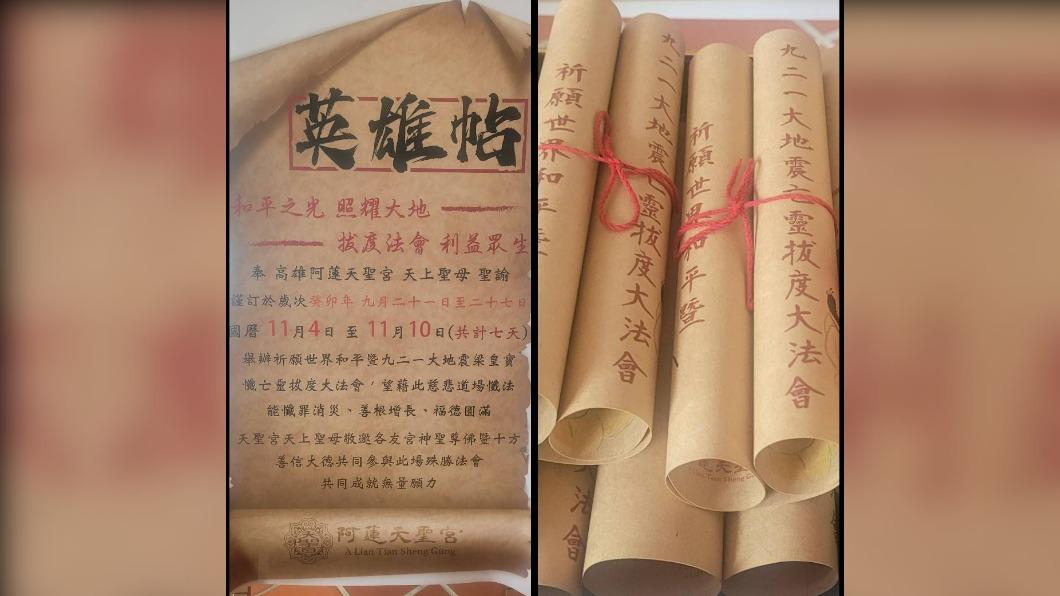 英雄帖
和平之光 照耀大地
拔度法會 利益眾生
奉 高雄阿蓮天聖宮 天上聖母 聖諭
謹訂於歲次癸卯年 九月二十一日至二十七日
國曆 11月4日 至 11月10日(共計七天)
舉辦祈願世界和平暨九二一大地震梁皇寶
懺亡靈拔度大法會,望藉此慈悲道場懺法
能懺罪消災、善根增長、福德圓滿
天聖宮天上聖母敬邀各友宮神聖尊佛暨十方
善信大德共同參與此場殊勝法會
共同成就無量願力
阿蓮天聖宮
A Lian Tian Sheng Gung
祈願世界和平
九二一大地震亡靈拔度大法會
祈願世界和平暨
九二一大地震亡靈拔度大法會
法會